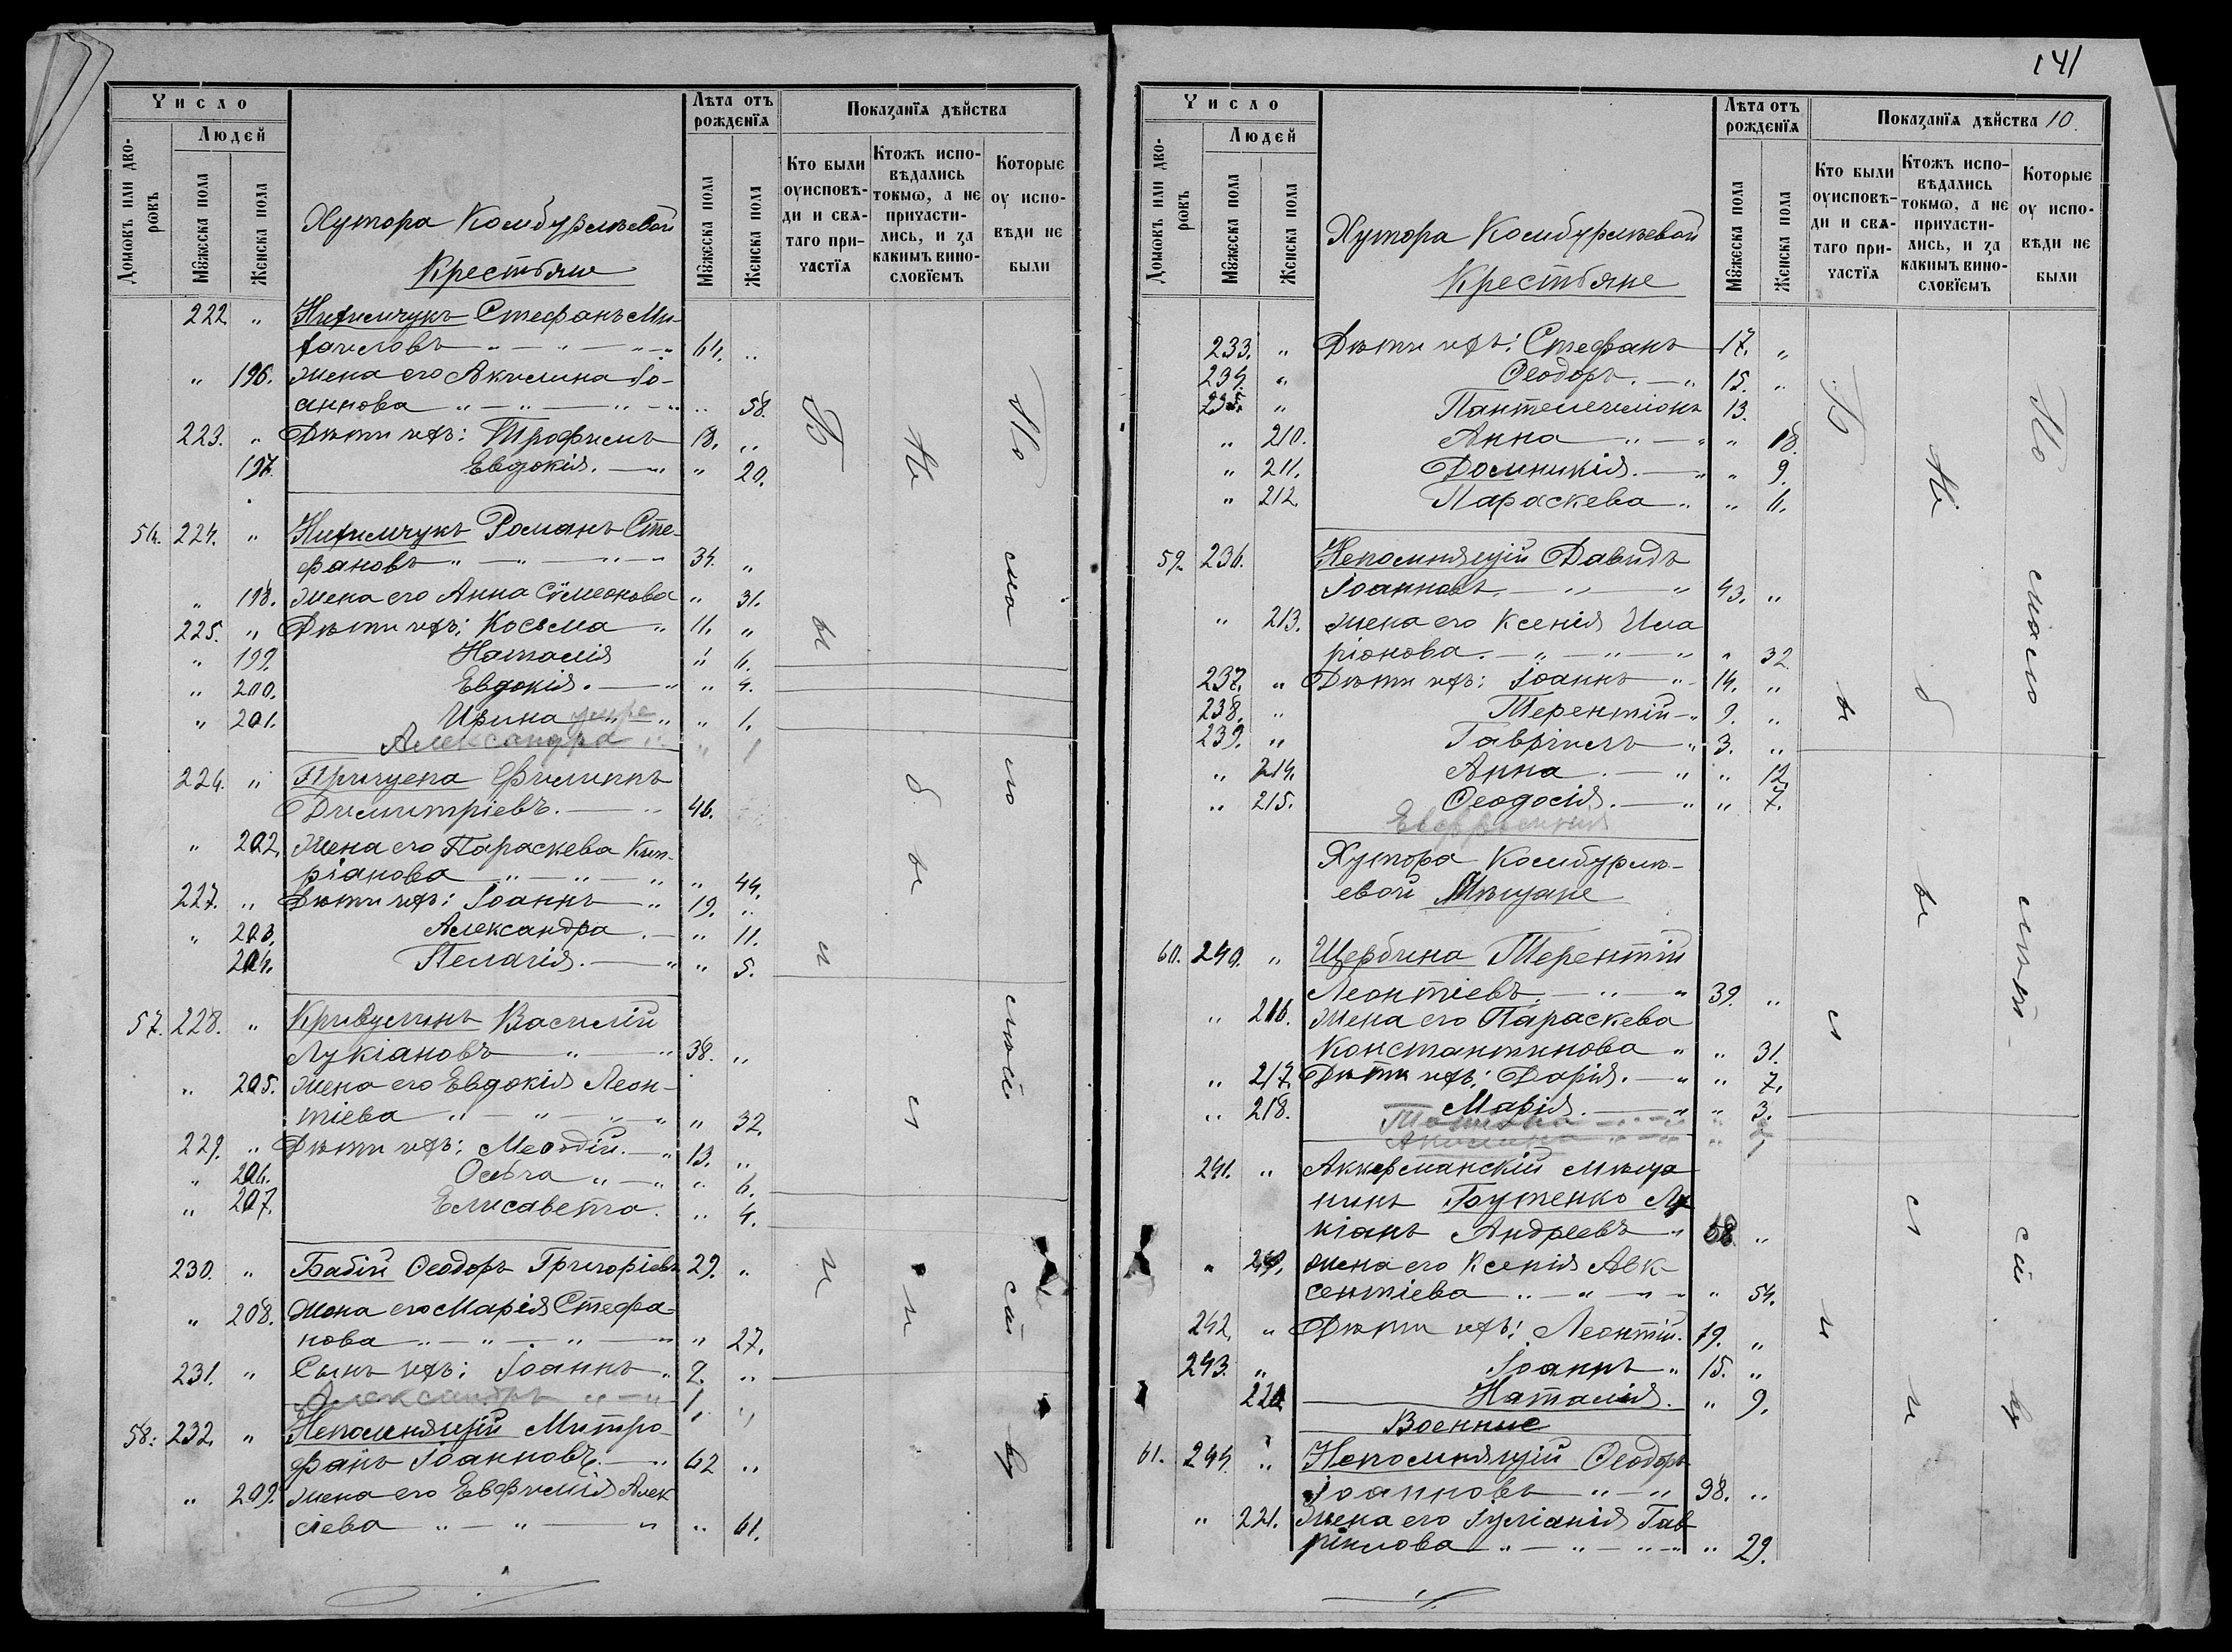 Число
Людей
Домовъ или дворовъ
Мꙋжеска пола
Женска пола
Лѣта отъ рожденїѧ
Мꙋжеска пола
Женска пола
Показанїѧ дѣйства
Кто были ѹисповѣди и свѧтаго причастїѧ
Ктожъ исповѣдались токмѡ, а не причастились, и за какимъ винословїемъ
Которые ѹ исповѣди не были
Хутора Камбурлѣевой
Крестьяне
222 „ Нихимчукъ Стефанъ Ми-
хаиловъ „ — „ — „ 64. „
„ 196. жена его Акилина Іо-
аннова „ — „ — „ — „ „ 58.
223. „ Дѣти ихъ: Трофимъ 18. „
197. Евдокія. — „ „ 20.
56. 224. „ Нихимчукъ Романъ Сте-
фановъ „ — „ — „ — „ 34. „
„ 198. жена его Анна Сѵмеонова „ 31.
225. „ Дѣти ихъ: Косьма „ 11. „
„ 199. Наталія „ 6.
„ 200. Евдокія. — „ „ 4.
„ 201. Ирина умре „ „ 1.
Александра „ „ 1
226. „ Пригуена Филиппъ
Димитріевъ. — „ 46.
„ 202. жена его Параскева Кип-
ріанова „ — „ — „ „ 44.
227. „ Дѣти ихъ: Іоаннъ — „ 19. „
„ 203. Александра. — „ 11.
204. Пелагія. — „ „ 5.
57. 228. „ Кривулинъ Василій
Лукіановъ — „ — „ 38. „
„ 205. жена его Евдокія Леон-
тіева „ — „ — „ „ 32.
229. „ Дѣти ихъ: Меѳодій. — „ 13. „
„ 206. Ольга „ — „ „ 6.
„ 207. Елисавета. „ 4.
230. „ Бабій Ѳеодоръ Григоріевъ 29. „
„ 208. жена его Марія Стефа-
нова „ — „ — „ — „ „ 27.
231. „ Сынъ ихъ: Іоаннъ „ 2. „
Александръ „ — „ 1 „
58. 232. „ Непомнящій Митро-
фанъ Іоанновъ. — „ 62 „
„ 209. жена его Евфимія Алек
сіева „ — „ — „ „ 61.
Бы ли
Не бы ли
По смо лю слѣсій сій ву
141
Число
Людей
Домовъ или дворовъ
Мꙋжеска пола
Женска пола
Лѣта отъ рожденїѧ
Мꙋжеска пола
Женска пола
Показанїѧ дѣйства 10.
Кто были ѹисповѣди и свѧтаго причастїѧ
Ктожъ исповѣдались токмѡ, а не причастились, и за какимъ винословїемъ
Которые ѹ исповѣди не были
Хутора Камбурлѣевой
Крестьяне
233. „ Дѣти ихъ: Стефанъ 17. „
234. „ Ѳеодоръ. — „ 15. „
235. „ Пантелеимонъ 13.
„ 210. Анна „ — „ „ 18.
„ 211. Домникія. — „ „ 9.
„ 212. Параскева „ „ 6.
59. 236. Непомнящій Давидъ
Іоанновъ. — „ — „ 43. „
„ 213. жена его Ксенія Ила
ріонова. — „ — „ — „ „ 32
237. „ Дѣти ихъ: Іоаннъ „ 14. „
238. „ Терентій — „ 9. „
239. „ Гавріилъ — „ 3. „
„ 214. Анна. — „ „ 12.
„ 215. Ѳеодосія. — „ „ 7.
Евфросинія
Хутора Камбурлѣ-
евой Мѣщане
60. 240. „ Щербина Терентій
Леонтіевъ. — „ — „ 39. „
„ 216. жена его Параскева
Константинова „ „ 31.
„ 217. Дѣти ихъ: Дарія. — „ „ 7.
„ 218. Марія. — „ „ 3.
Татіана
Акилина
241. „ Аккерманскій мѣща
нинъ Бутенко Лу
кіанъ Андреевъ „ 58. „
„ 219. жена его Ксенія Авк-
сентіева „ — „ — „ „ 54.
242. „ Дѣти ихъ: Леонтій. 19. „
243. „ Іоаннъ „ 15. „
220 Наталія. „ 9.
Военные
61. 244. „ Непомнящій Ѳеодоръ
Іоанновъ „ — „ 38. „
„ 221. Жена его Іуліанія Гав-
ріилова „ — „ — „ „ 29.
Бы ли
Не бы ли